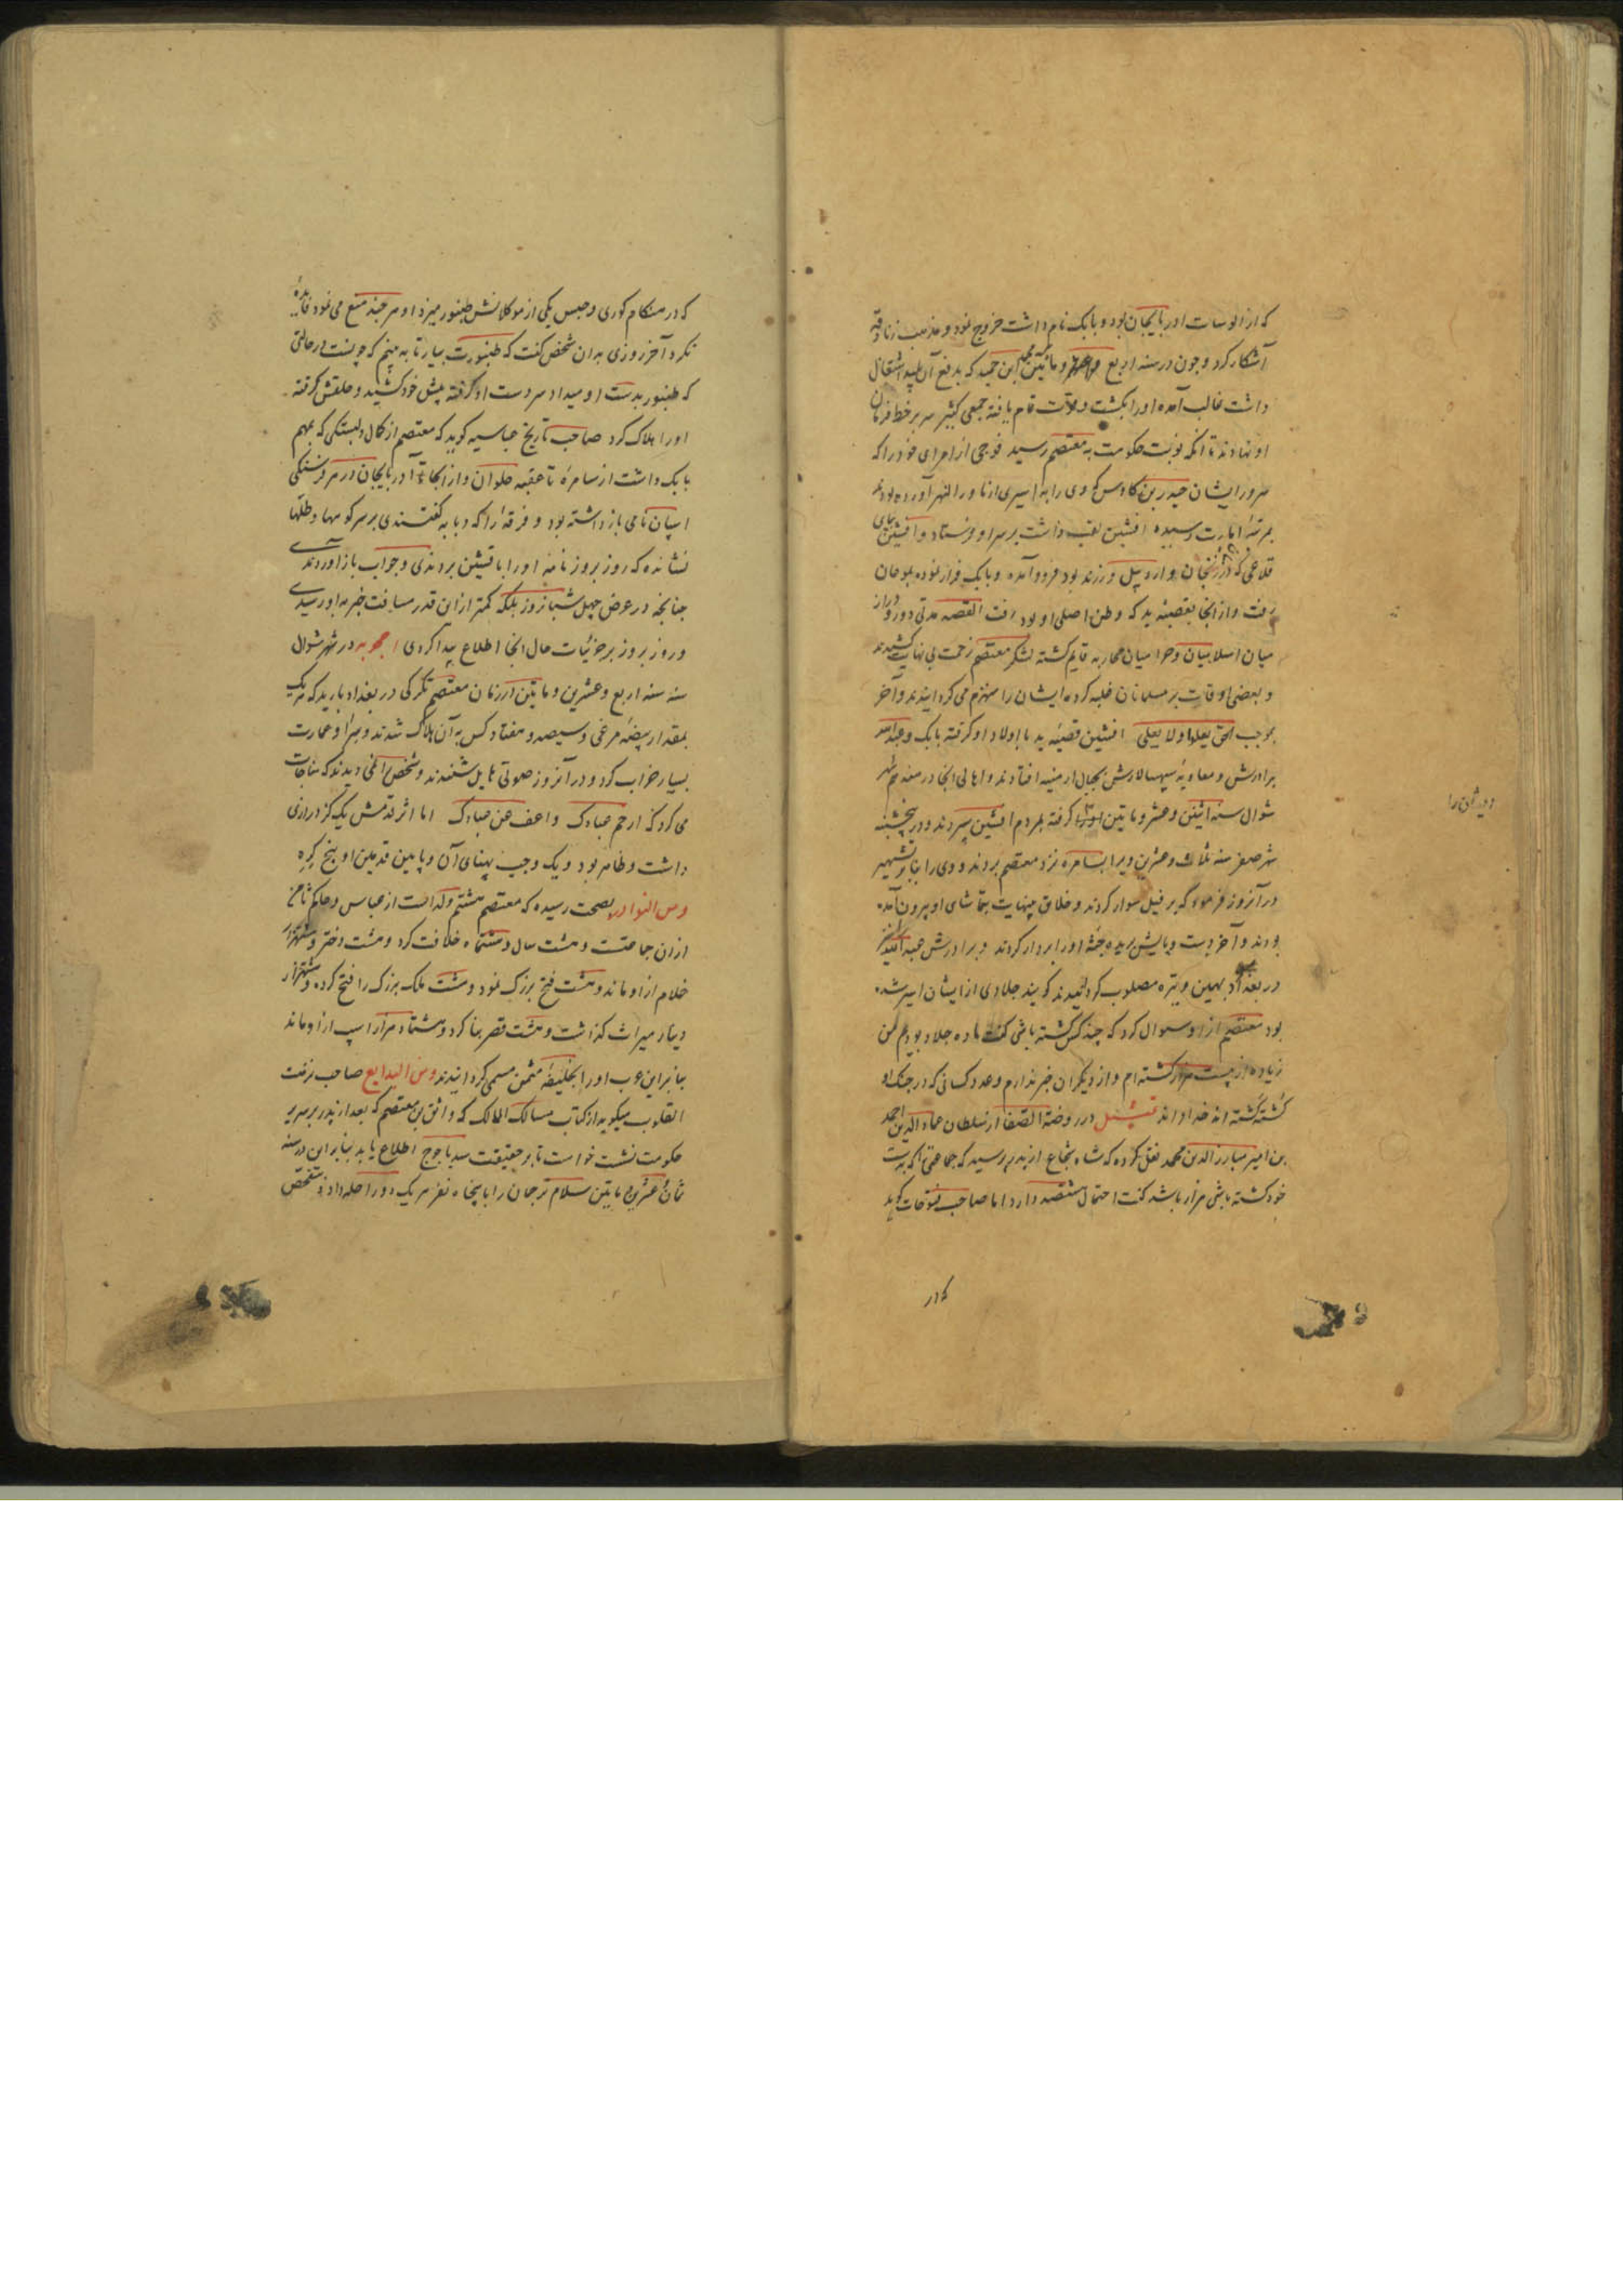 که از الوسات ادربایجان بود و بابک نام داشت خروج نمود و مذهب زنادقه
آشکار کرد و چون در سنه اربع و مأتین محمد ابن حمید که بدفع آن پلید اشتغال
داشت غالب آمده او را بکشت و ملاّت تمام یافته جمعی کثیر سر بر خط فرمان
او نهادند تا انکه نوبت حکومت به معتصم رسید فوجی از امرای خود را که
سرور ایشان حیدر بن کاوس که وی را به اسیری از ماورا النهر آورده بودند
بمرتبهٔ امارت رسیده افشین لقب داشت بر سر او فرستاد و افشین بپای
قلاعی که در زنجان و اردبیل و زرند بود فرود آمده و بابک فرار نموده بموغان
رفت و از انجا بقصبهٔ بد که وطن اصلی او بود رفت القصه مدتی دور و دراز
میان اسلامیان و حرامیان محاربه قایم گشته لشکر معتصم زحمت بی نهایت کشیدند
و بعضی اوقات بر مسلمانان غلبه کرده ایشان را منهزم می کردانیدند و آخر
بموجب الحق یعلو ولا یعلی افشین قصبهٔ بد با اولاد او گرفته بابک و عبدالله
برادرش و معاویه سپهسالارش بجبال ارمنیه افتادند و اهالی انجا در هفدهم شهر
شوال سنه اثنین و عشر و مایتین گرفته بمردم افشین سپردند و در پنجشنبه
شهر صفر سنه ثلاث و عشرین ویرا بسامره نزد معتصم بردند و وی را بنابر تشهیر
در آنروز فرمود که بر فیل سوار کردند و خلاق بینهایت بتماشای او بیرون آمده
بودند و آخر دست و پایش بریده جثهٔ او را بر دار کردند و برادرش عبدالله نیز
در بغداد بهمین وتیره مصلوب کردانیدند کویند جلادی از ایشان اسیر شده
بود معتصم از او سوال کرد که چند کس کشته باشی کفت ما ده جلاد بودیم من
زیاده از بیست هزار کشته ام و از دیکران خبر ندارم و عدد کسانی که در جنک او
کشته گشته اند خدا داند تمثیل در روضة الصفا از سلطان عماد الدین احمد
بن امیر مبارز الدین محمد نقل کرده که شاه شجاع از پدر پرسید که جماعتی که بدست
خود کشته باشی هزار باشد کفت احتمال هشتصد دارد اما صاحب فتوحات کوید
که در
که در هنکام کوری و حبس یکی از موکلانش طنبور میزد او هر چند منع می نمود فایده
نکرد آخر روزی بدان شخص کفت که طنبورت بیار تا به بینم که چونست در حالتی
که طنبور بدست او میداد سر دست او کرفته پیش خود کشید و حلقش کرفته
او را هلاک کرد صاحب تاریخ عباسیه کوید که معتصم از کمال دلبستکی که بمهم
بابک داشت از سامره تا عقبه حلوان و از انجا تا آدربایجان در هر فرسنکی
اسپان تامی باز داشته بود و فرقه را که دیابه کفتندی بر سر کوهها و طلها
نشانده که روز بروز نامهٔ او را بافشین بردندی و جواب باز آوردندی
چنانچه در عرض چهل شبانروز بلکه کمتر از این قدر مسافت خبر به او رسیدی
و روز بروز بر جزئیات حال انجا اطلاع پیدا کردی اعجوبه در شهر شوال
سنه سنه اربع و عشرین و مایتین در زمان معتصم تکرکی در بغداد بارید که هر یک
بمقدار بیضهٔ مرغی و سیصد و هفتاد کس به آن هلاک شدند و سرا و عمارت
بسیار خراب کرد و در آنروز صوتی هایل شنیدند و شخص را نمی دیدند که مناجات
می کرد که ارحم عبادک واعف عن عبادک اما اثر قدمش یک کز درازی
داشت و ظاهر بود و یک وجب پهنای آن و پایین قدمین او پنج کره
و من النوادر بصحت رسیده که معتصم هشتم ولد است از عباس و حاکم ثامن
از ان جماعتست و هشت سال و هشتماه خلافت کرد و هشت دختر و هشتهزار
غلام از او ماند و هشت فتح بزرک نمود و هشت ملک بزرک را فتح کرده و هشتهزار
دینار میراث کذاشت و هشت قصر بنا کرد و هشتاد هزار اسپ از او ماند
بنابراین عرب او را بخلیفهٔ مثمن مسمی کردانیدند و من البدایع صاحب نزهت
القلوب میکوید از کتاب مسالک الممالک که واثق بن معتصم که بعد از پدر بر سریر
حکومت نشست خواست تا بر حقیقت سد یاجوج اطلاع یابد بنابر این در سنه
ثمان عشرین و مایتین سلام ترجمان را با پنجاه نفر هر یک دو راحله داد و بتفحص